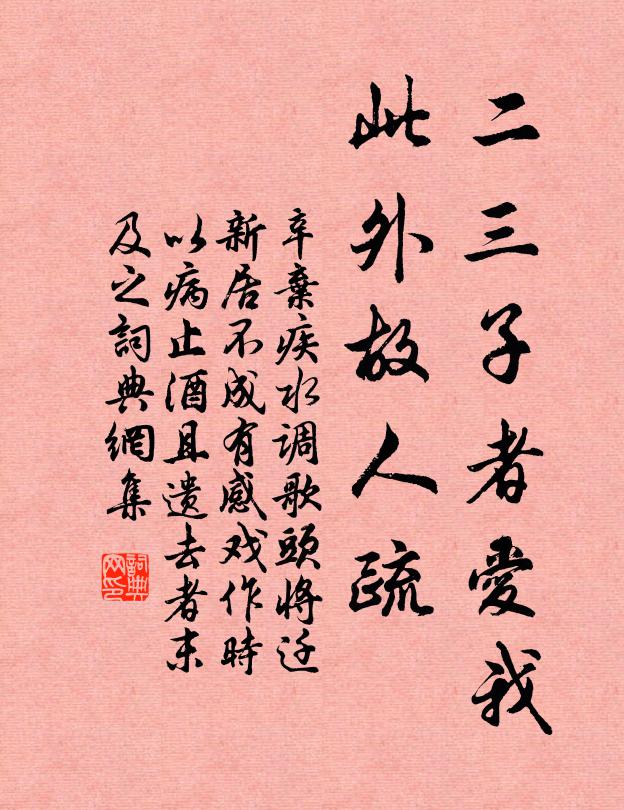 二三子者愛我
此外故人疏
辛棄疾水调歌頭将迁
新居不成有感戏作時
以病止酒且遗去者末
及之詞典網集
詞典网印